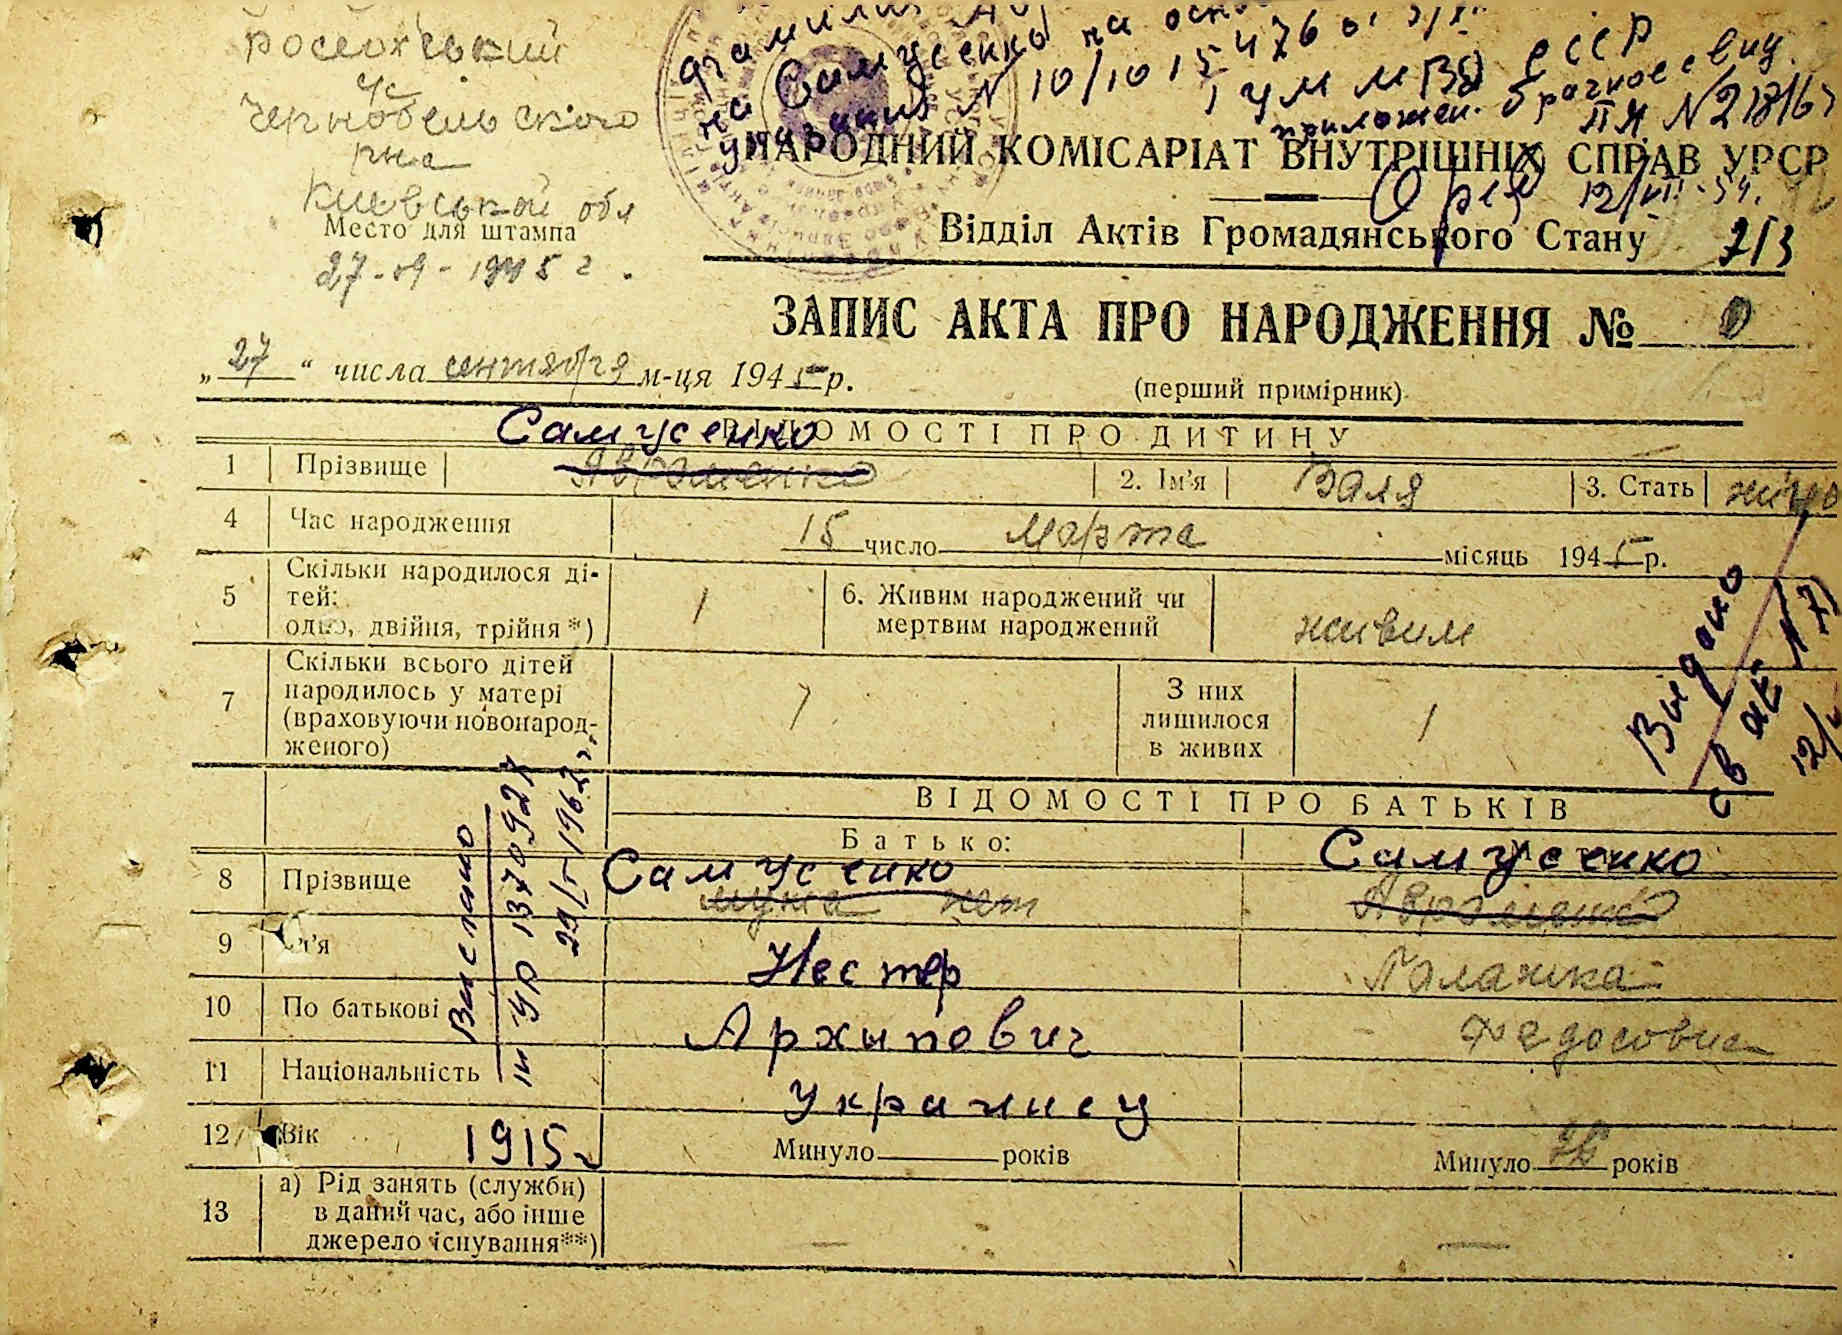 Чернобельского
р-на
Киевськой обл
Место для штампа
27-09-1945 г.
на Самусенко на осн
указания N 10/10 15476 от
приложен. брачное свид.
ІІЯ N 218167
НАРОДНИЙ КОМІСАРІАТ ВНУТРІШНІХ СПРАВ УРСР
12/VII-54.
Відділ Актів Громадянського Стану 7/3
ЗАПИС АКТА ПРО НАРОДЖЕННЯ №
„27“ числа сентября м-ця 1945 р.
(перший примірник)
Самусенко
ВІДОМОСТІ ПРО ДИТИНУ
1 Прізвище Авраменко 2. Ім'я Валя 3. Стать
4 Час народження 15 число Марта місяць 1945 р.
5 Скільки народилося ді-
тей:
одно, двійня, трійня*) 1 6. Живим народжений чи
мертвим народжений живим
7 Скільки всього дітей
народилось у матері
(враховуючи новонарод-
женого) 1 З них
лишилося
в живих 1
Выдано
св ак N 7
12/
ВІДОМОСТІ ПРО БАТЬКІВ
Батько:
Самусенко Самусенко
8 Прізвище мужа нет Авраменко
9 Ім'я Нестер Палажка
10 По батькові Архыпович Федосовна
11 Національність Украинец
12 Вік 1915 Минуло років Минуло років
13 а) Рід занять (служби)
в даний час, або інше
джерело існування**) — —
Выслано
УР 1370927
29/V-1962 г.